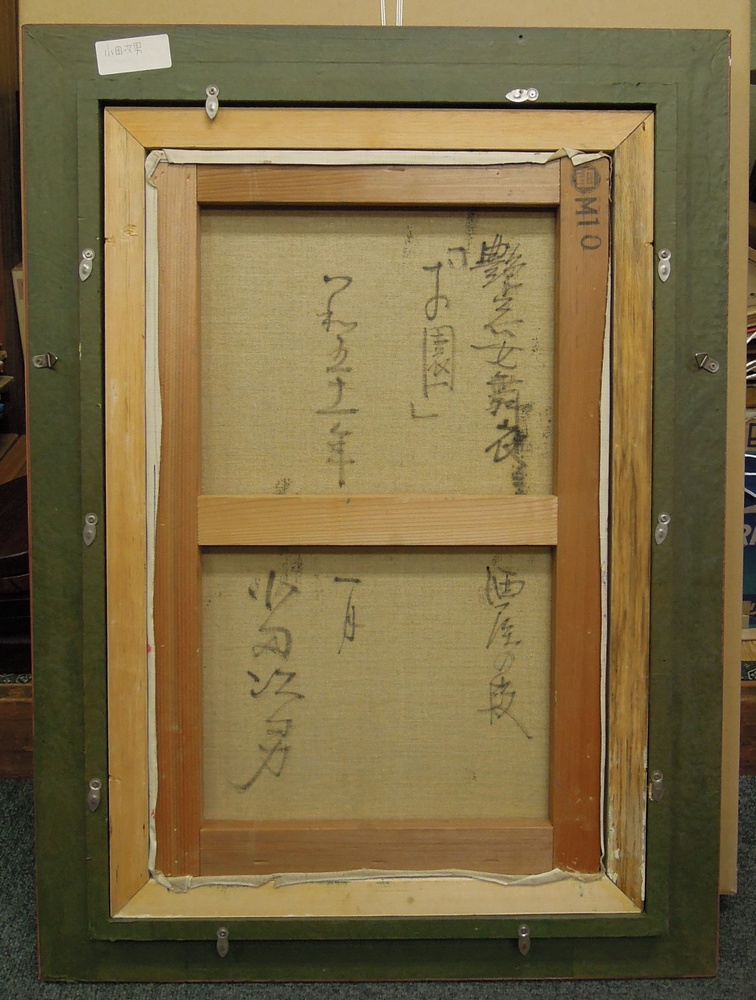 小田次男
M10
艶容女舞衣 酒屋の段
「お園」
昭和五十一年 一月
小田次男